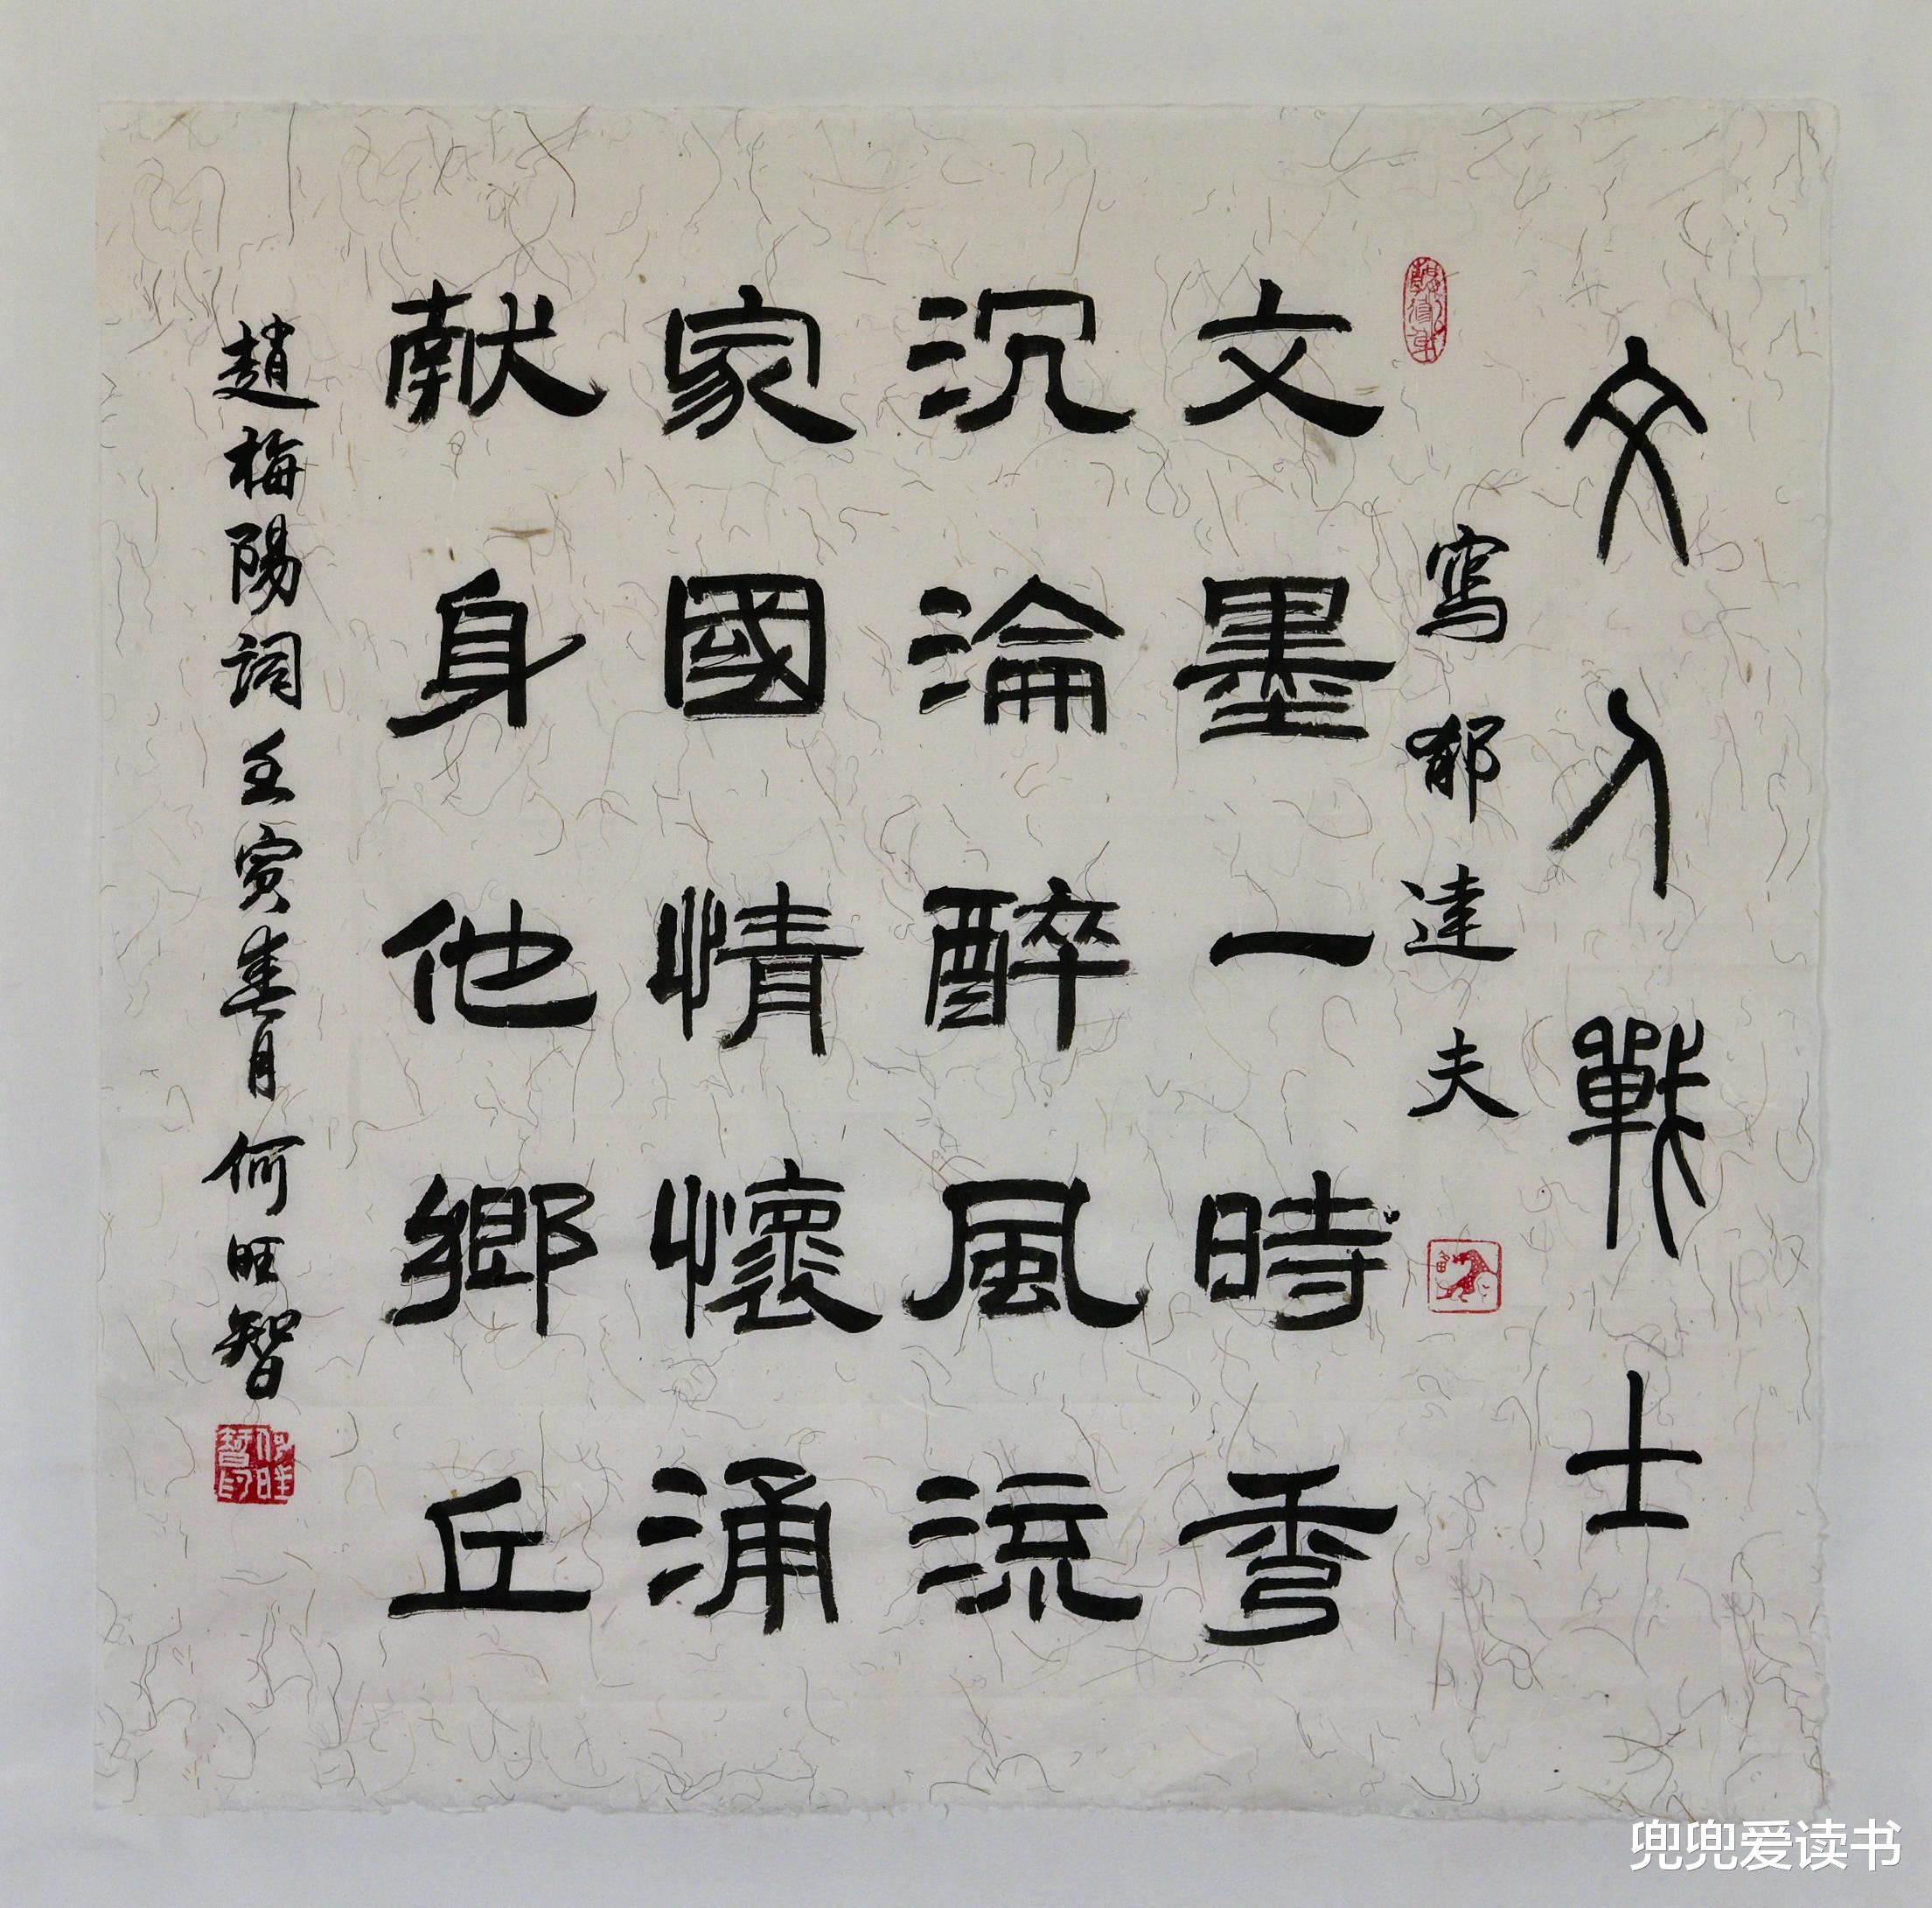 文人戰士
寫郁達夫
文墨一時秀
沉淪醉風流
家國情懷涌
献身他鄉丘
趙梅陽詞壬寅春月何旺智
兜兜爱读书